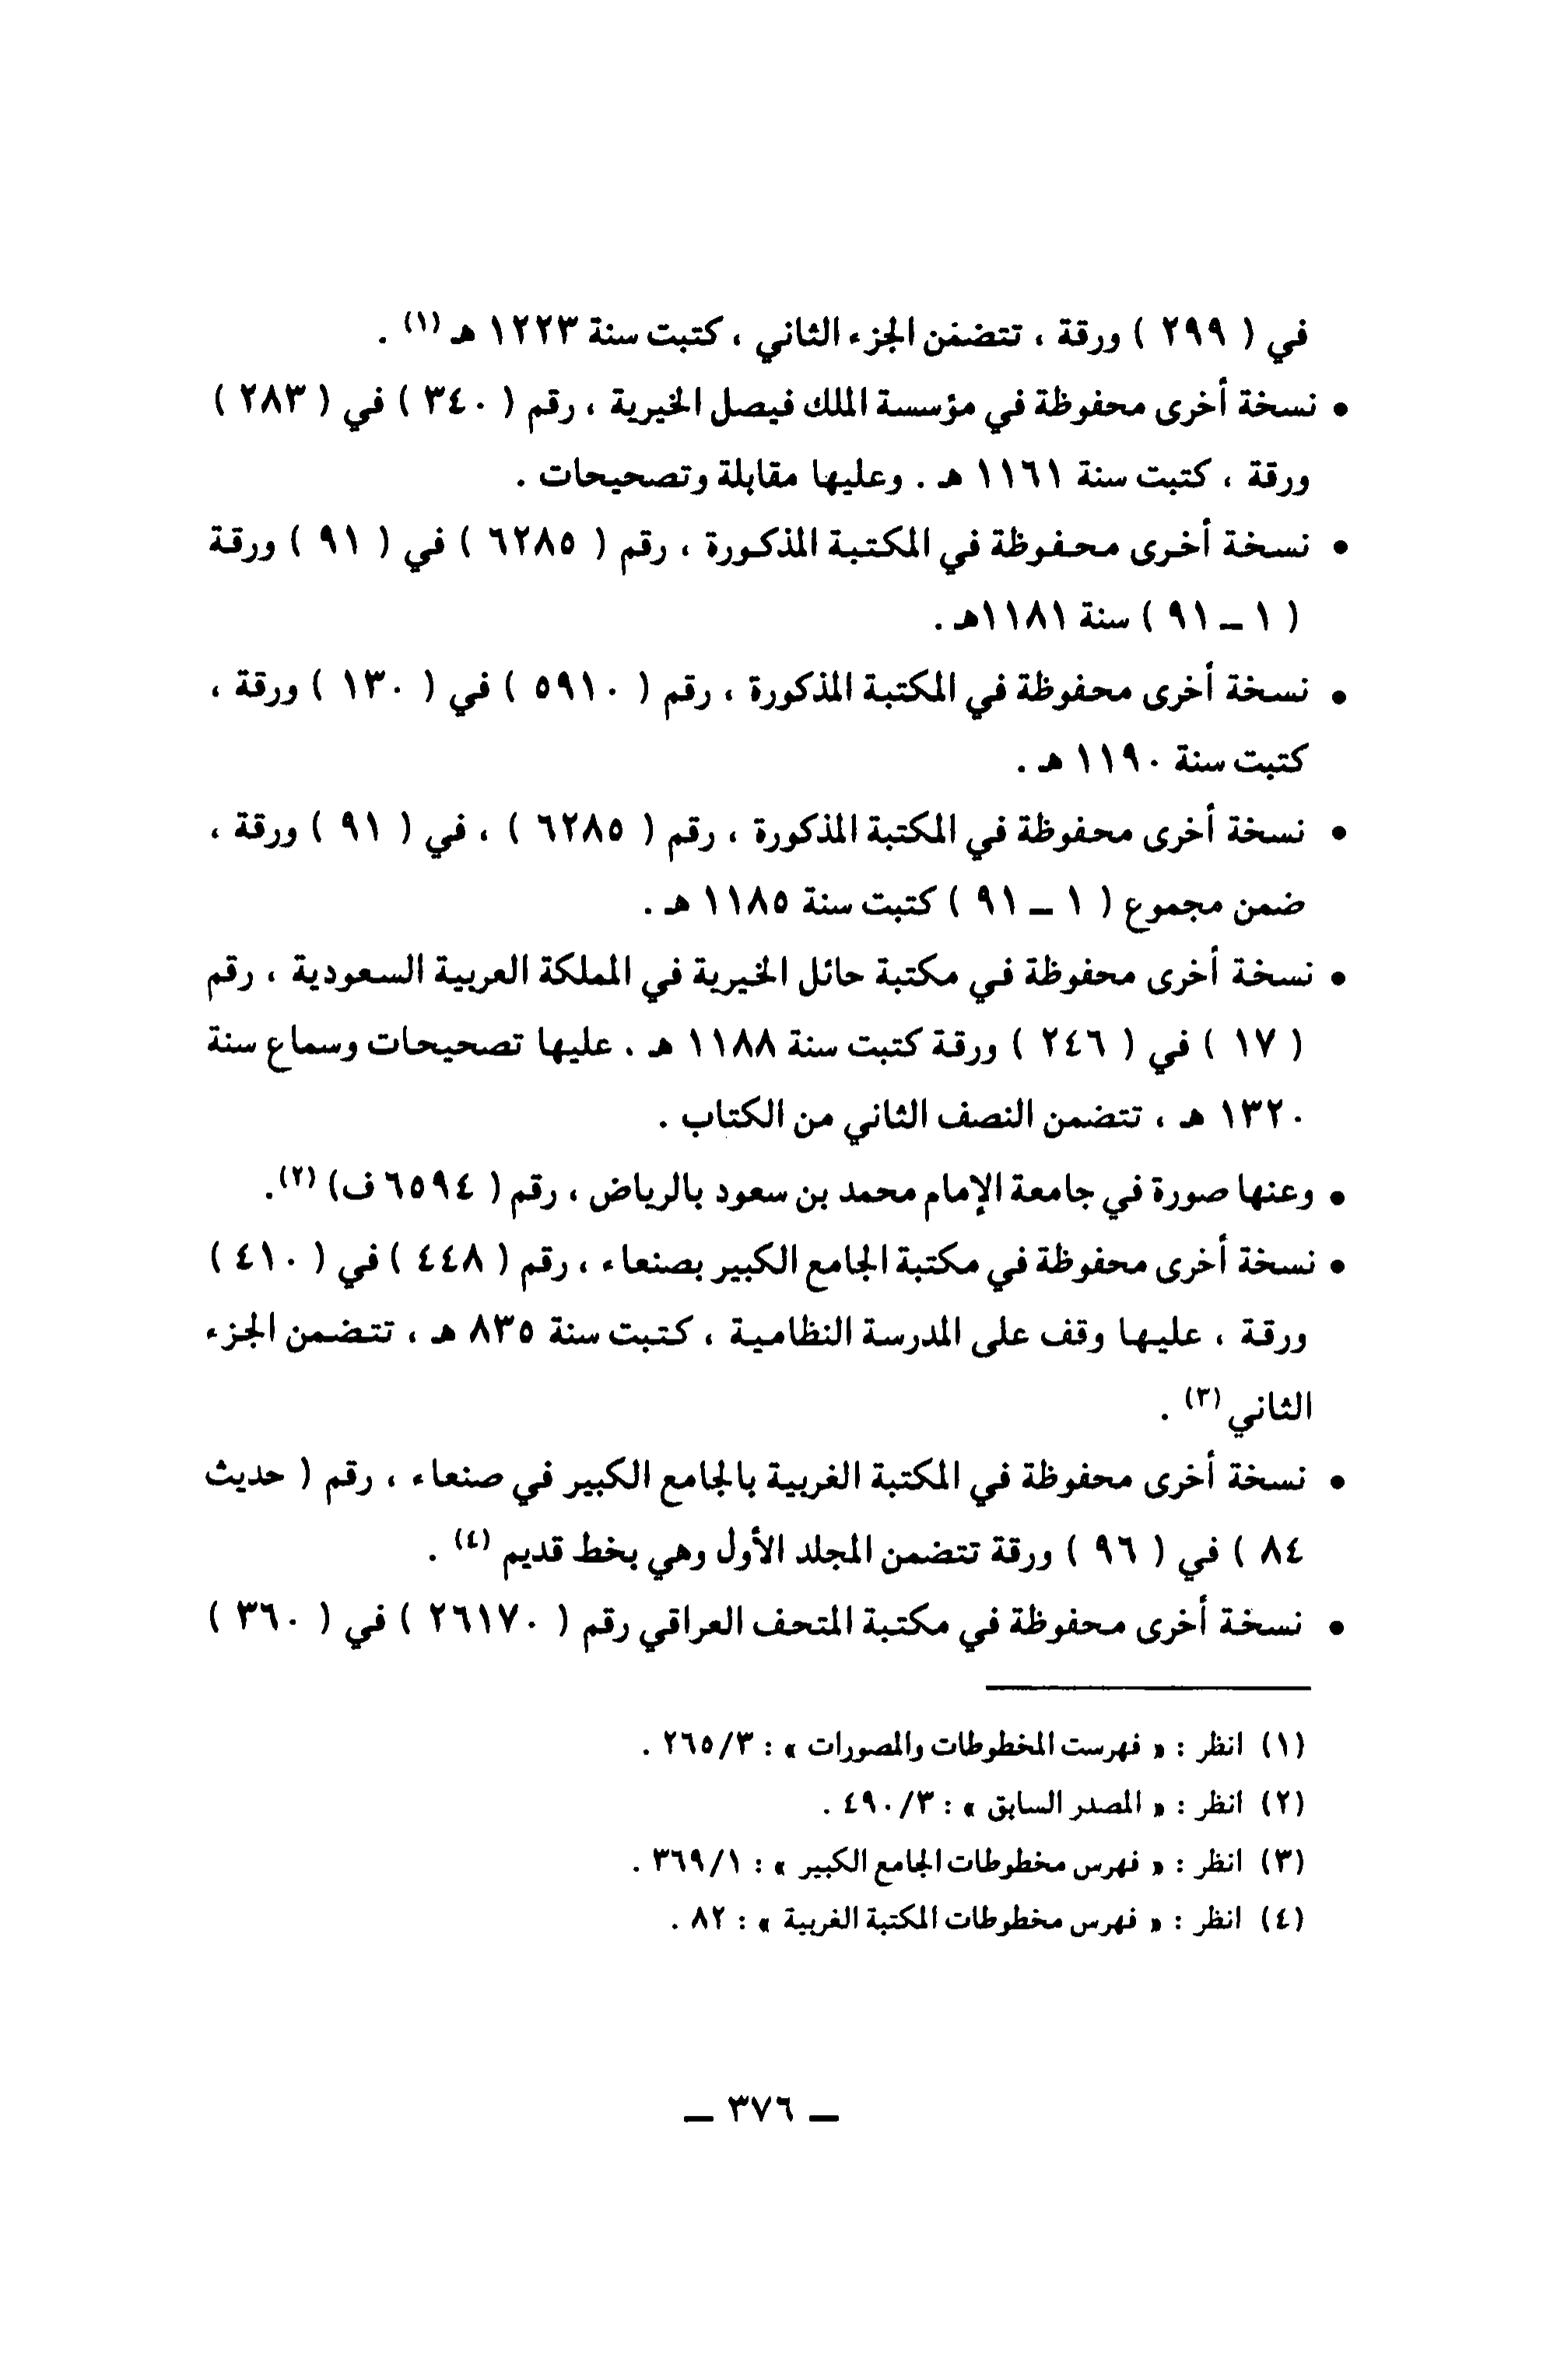 في ( ٢٩٩ ) ورقة ، تتضمن الجزء الثاني ، كتبت سنة ١٢٢٣ هـ (١) .
• نسخة أخرى محفوظة في مؤسسة الملك فيصل الخيرية ، رقم ( ٣٤٠ ) في ( ٢٨٣ )
ورقة ، كتبت سنة ١١٦١ هـ . وعليها مقابلة وتصحيحات .
• نسخة أخرى محفوظة في المكتبة المذكورة ، رقم ( ٦٢٨٥ ) في ( ٩١ ) ورقة
( ١ ـ ٩١ ) سنة ١١٨١هـ .
• نسخة أخرى محفوظة في المكتبة المذكورة ، رقم ( ٥٩١٠ ) في ( ١٣٠ ) ورقة ،
كتبت سنة ١١٩٠ هـ .
• نسخة أخرى محفوظة في المكتبة المذكورة ، رقم ( ٦٢٨٥ ) ، في ( ٩١ ) ورقة ،
ضمن مجموع ( ١ ـ ٩١ ) كتبت سنة ١١٨٥ هـ .
• نسخة أخرى محفوظة في مكتبة حائل الخيرية في المملكة العربية السعودية ، رقم
( ١٧ ) في ( ٢٤٦ ) ورقة كتبت سنة ١١٨٨ هـ . عليها تصحيحات وسماع سنة
١٣٢٠ هـ ، تتضمن النصف الثاني من الكتاب .
• وعنها صورة في جامعة الإمام محمد بن سعود بالرياض ، رقم ( ٦٥٩٤ ف) (٢).
• نسخة أخرى محفوظة في مكتبة الجامع الكبير بصنعاء ، رقم ( ٤٤٨ ) في ( ٤١٠ )
ورقة ، عليها وقف على المدرسة النظامية ، كتبت سنة ٨٣٥ هـ ، تتضمن الجزء
الثاني (٣) .
• نسخة أخرى محفوظة في المكتبة الغربية بالجامع الكبير في صنعاء ، رقم ( حديث
٨٤ ) في ( ٩٦ ) ورقة تتضمن المجلد الأول وهي بخط قديم (٤) .
• نسخة أخرى محفوظة في مكتبة المتحف العراقي رقم ( ٢٦١٧٠ ) في ( ٣٦٠ )
(١) انظر : « فهرست المخطوطات والمصورات » : ٢٦٥/٣ .
(٢) انظر : « المصدر السابق » : ٤٩٠/٣ .
(٣) انظر : « فهرس مخطوطات الجامع الكبير » : ٣٦٩/١ .
(٤) انظر : « فهرس مخطوطات المكتبة الغربية » : ٨٢ .
ـ ٣٧٦ ـ